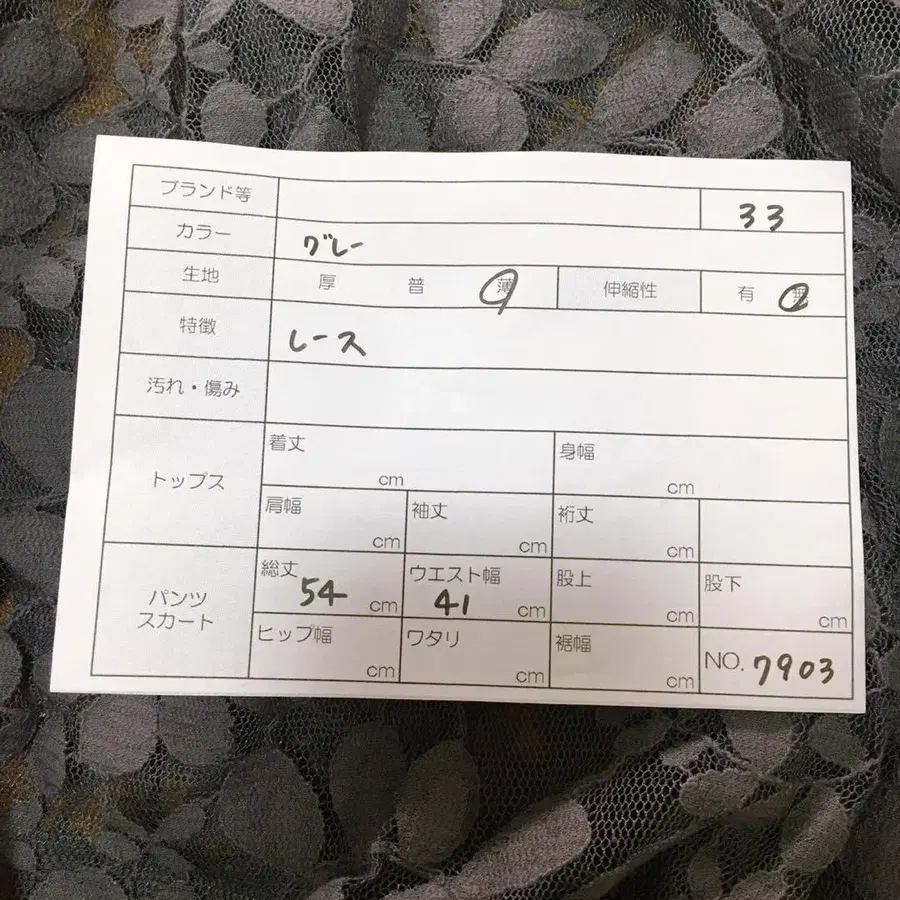 ブランド等 33
カラー グレー
生地 厚 普 薄 伸縮性 有 無
特徴 レース
汚れ・傷み
トップス
着丈 cm 身幅 cm
肩幅 cm 袖丈 cm 裄丈 cm
パンツ
スカート
総丈 54 cm ウエスト幅 41 cm 股上 cm 股下 cm
ヒップ幅 cm ワタリ cm 裾幅 cm NO. 7903